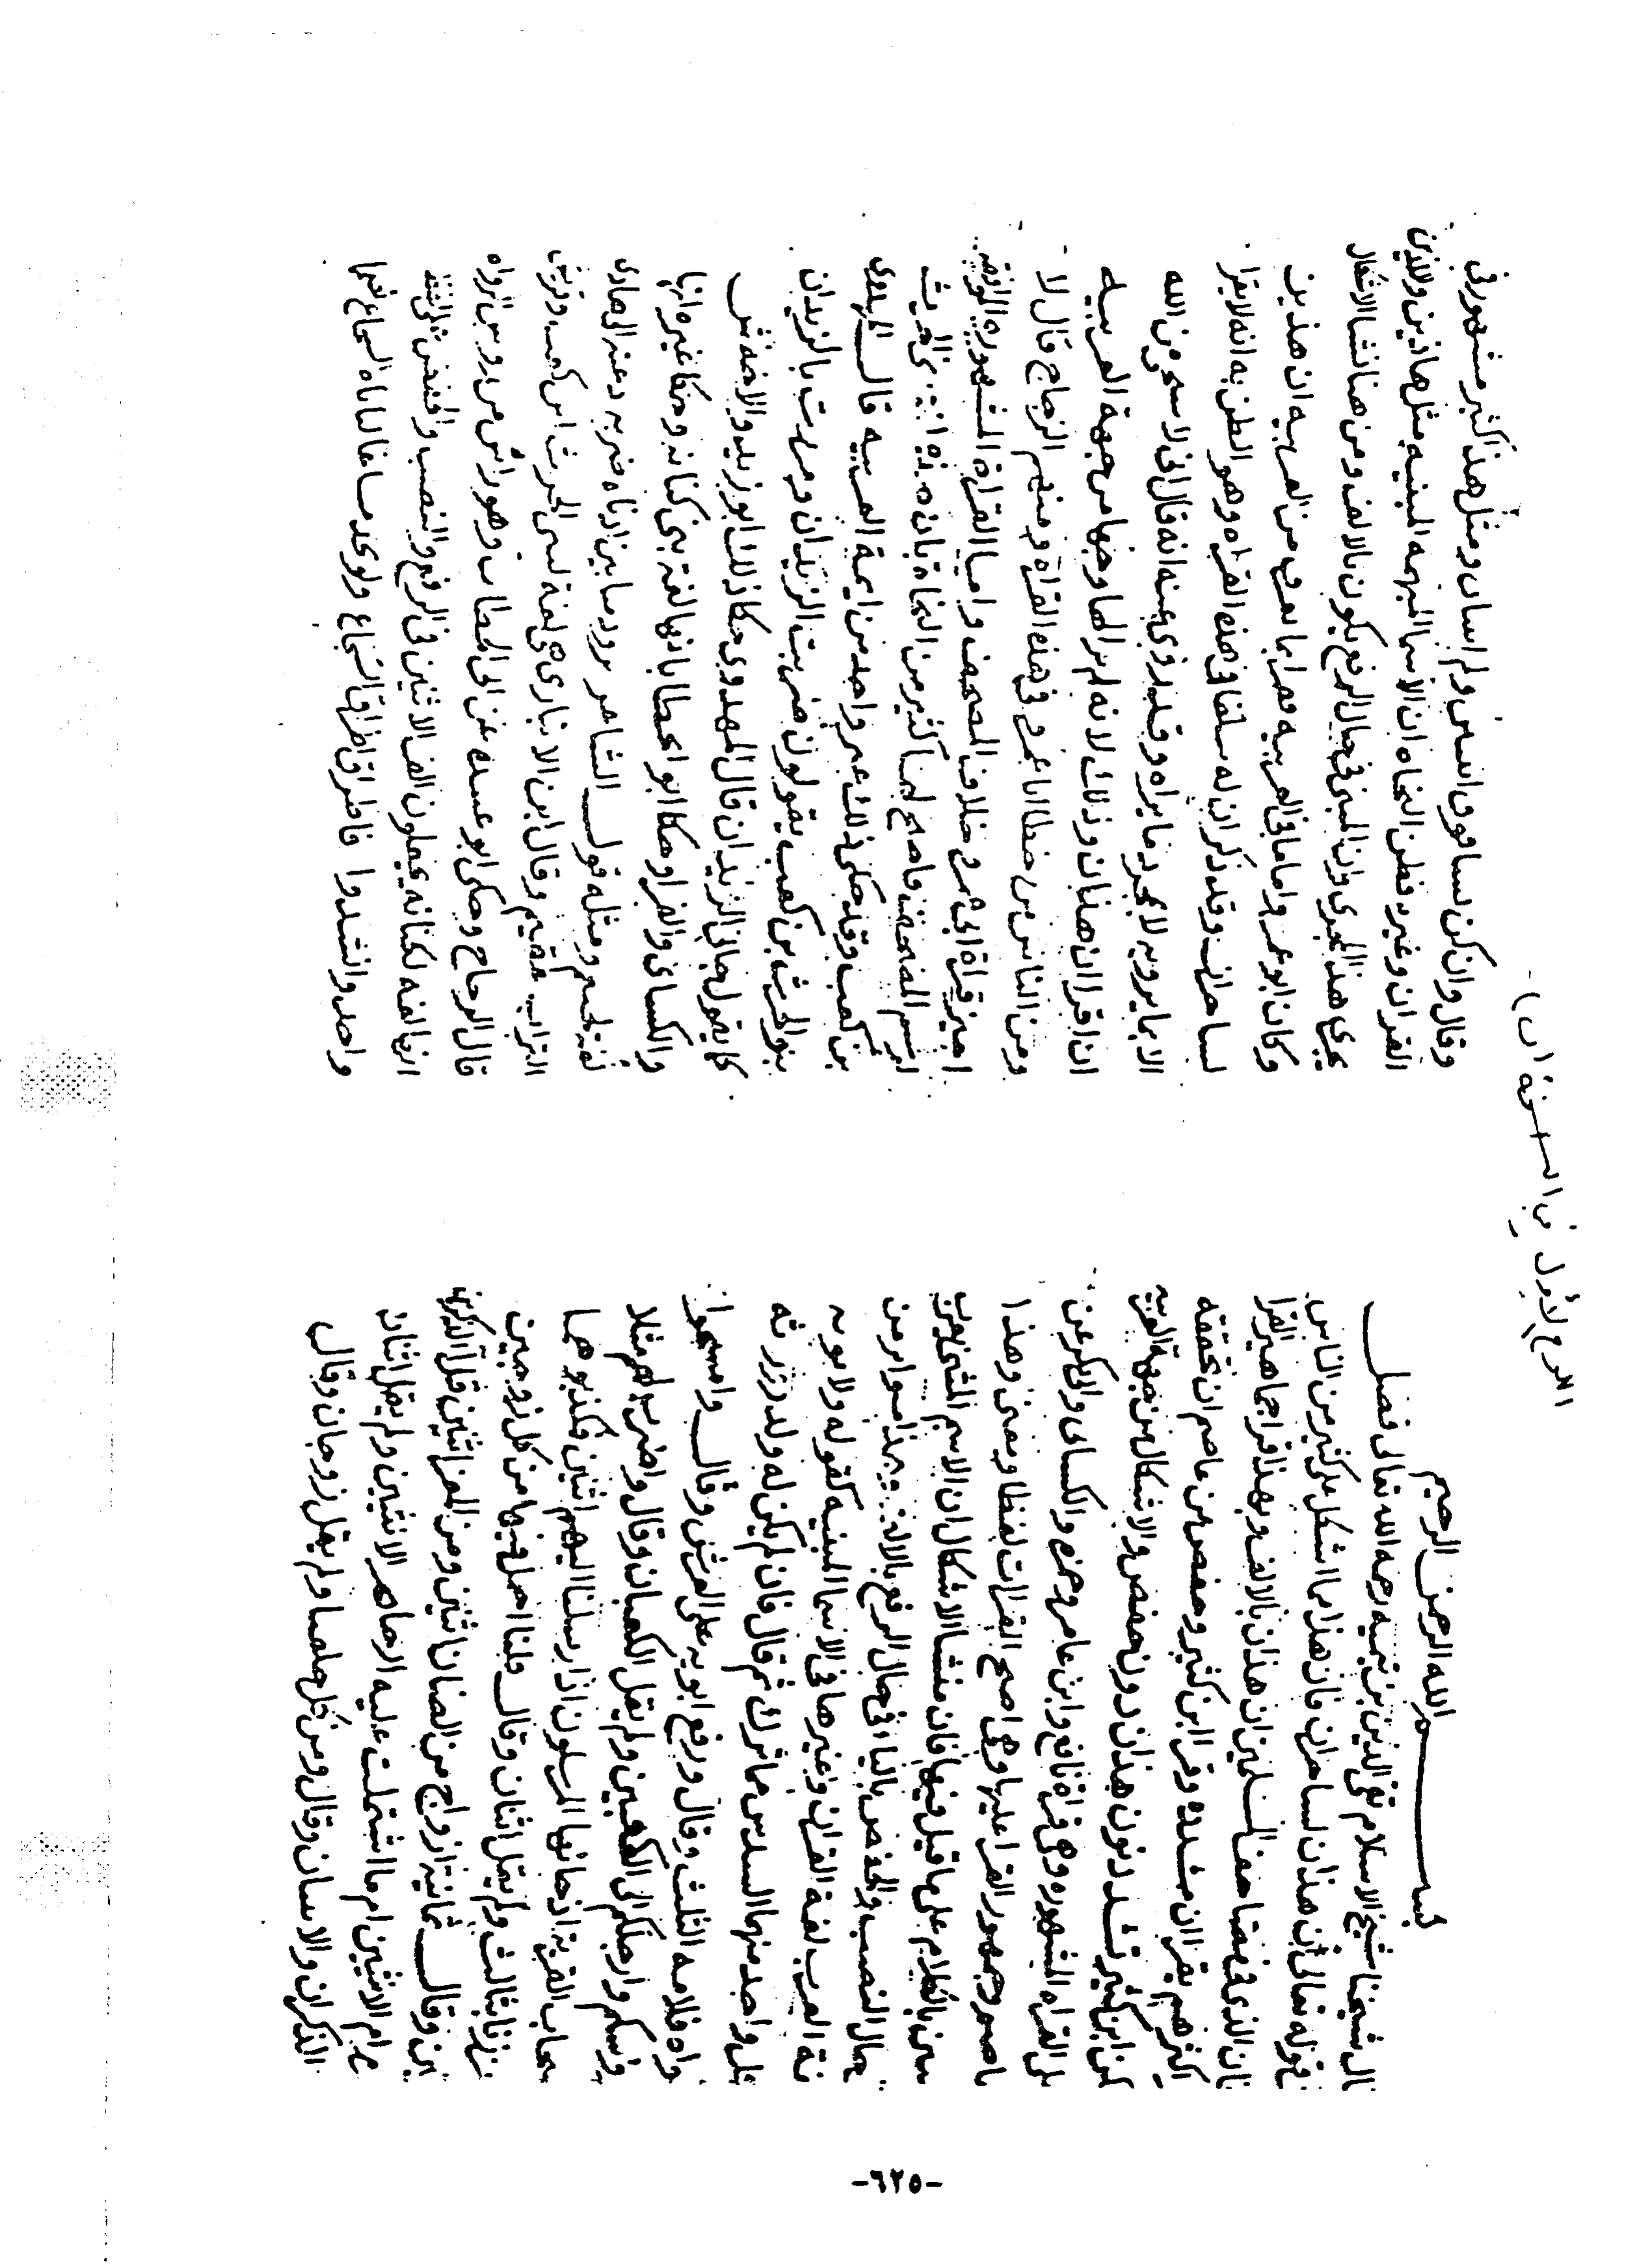 اللوح الأول من النسخة (ن)
بسم الله الرحمن الرحيم
ال شيخنا شيخ الاسلام تقي الدين بن تيميه رحمه الله تعالى فصل
قوله تعالى ان هذان لساحران فان هذا مما اشكل على كثير من الناس
ان الذي في مصاحف المسلمين ان هذان بالالف وبهذا قرا جماهير القرا
اكثرهم يقرا ان مشدده وقرا ابن كثير وحفص عن عاصم ان مخففه
لكن ابن كثير تشدد نون هذان دون حفص والاشكال من جهة العربيه
على القراه المشهوره وهي قراة نافع وابن عامر وحمزه والكسائي وابي بكر عن
عاصم وجمهور القرا عليها وهي اصح القراات لفظا ومعنى وهذا
تبين بالكلام على ما قيل فيها فان منشا الاشكال ان الاسم المثنى يعرب
حال النصب والخفض بالياء وفي حال الرفع بالالف وهذا متواتر من
غة العرب لغة القران وغيرها في الاسما المبنيه كقوله ولابويه
لكل واحد منهما السدس مما ترك ثم قال فان لم يكن له ولد وورثه
بواه فلامه الثلث وقال ورفع ابويه على العرش وقال وامسحوا
برؤسكم وارجلكم الى الكعبين ولم يقل الكعبان وقال واضرب لهم مثلا
صحاب القرية اذ جاءها المرسلون اذ ارسلنا اليهم اثنين فكذبوهما
عززنا بثالث ولم يقل اثنان وقال قلنا احمل فيها من كل زوجين
ين وقال ثمانية ازواج من الضان اثنين ومن المعز اثنين قل آلذكرين
حرم ام الانثيين اما اشتملت عليه ارحام الانثيين ولم يقل اثنان
الذكران والانثيان وقال ومن كل خلقنا ولم يقل زوجان وقال
وقال وان كن نسا فوق اثنتين ولم اثنتان ومثل هذا كثير مشهور في
القران وغيره فظن النحاه ان الاسما المبهمه المبنيه مثل هاذين واللذين
تجري هذا المجرى وان المبني في حال الرفع يكون بالالف ومن هنا نشا الاشكال
وكان ابو عمرو اماما في العربيه فقرا بما يعرف من العربيه ان هذين
لساحران وقد ذكر ان له سلفا في هذه القراه وهو الظن به انه لا يقرا
الا بما يرويه لا بمجرد ما يراه وقد روي عنه انه قال اني لاستحي من الله
ان اقرا ان هذان وذلك لانه لم ير لها وجها من جهة العربيه
ومن الناس من خطا ابا عمرو في هذه القراة ومنهم الزجاج قال لا
اجيز قراة ابي عمرو خلاف المصحف واما القراة المشهوره الموافقه
لرسم المصحف فاحتج لها كثير من النحاة بان هذه لغة بني الحرث
بن كعب وقد حكى ذلك غير واحد من ايمة العربيه قال المهدوي
بنو الحرث بن كعب يقولون ضربت الزيدان ومررت بالزيدان
كما يقول جاني الزيدان قال المهدوي حكا ذلك ابو زيد والاخفش
والكسائي والفرا وحكا ابو الخطاب انها لغة بني كنانه وحكا غيره انها
لغة لخثعم ومثله قول الشاعر تزود منا بين اذناه ضربه دعته الى هابي
التراب عقيم وقال ابن الانباري هي لغة لبني الحرث ابن كعب وقريش
قال الزجاج وحكى ابو عبيده عن ابي الخطاب وهو راس من روس الرواه
انها لغه لكنانه يجعلون الف الاثنين في الرفع والنصب والخفض على لفظ
واحد وانشدوا فاطرق اطراق الشجاع ولو يجد مساغا لناباه الشجاع لصمما
-٦٢٥-